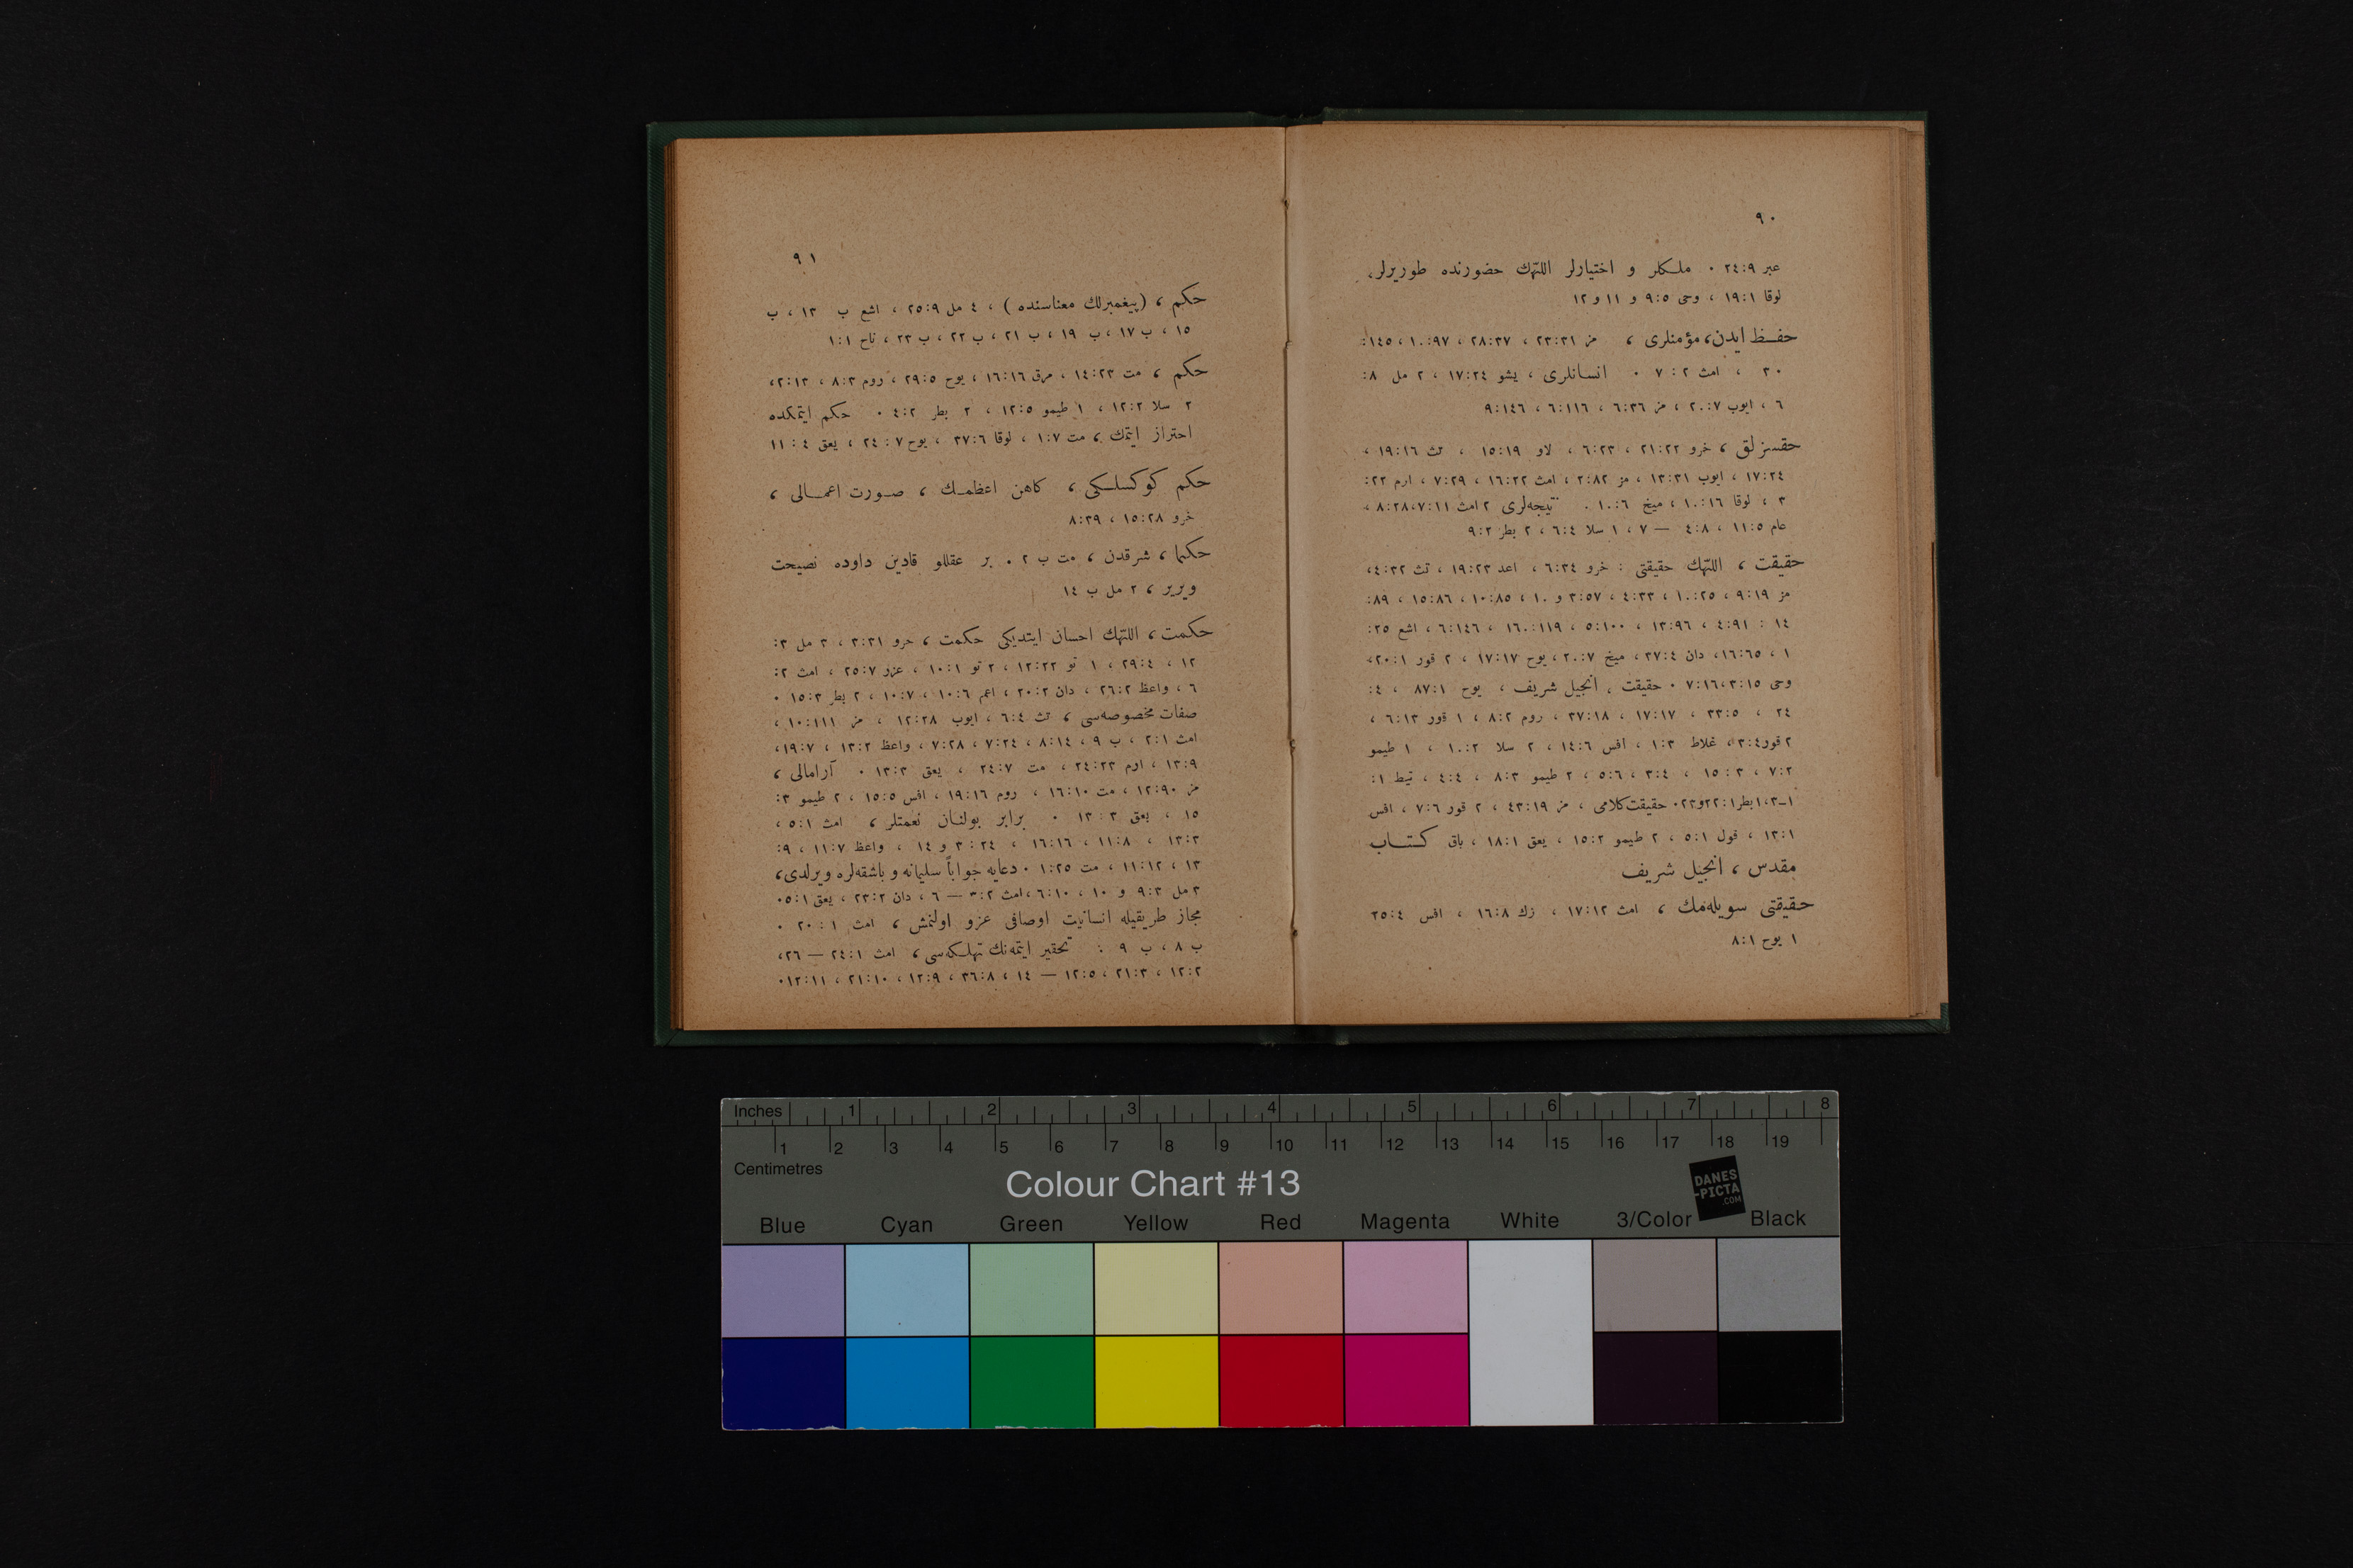 ٩٠
عبر ٩:٢٤ ٠ ملـكلر و اختیارلر اللّٰهك حضورنده طوریرلر،
لوقا ١:١٩ ، وحی ٥:٩ و ١١ و ١٢
حفـظ ایدن، مؤمنلری ، مز ٣١:٢٣ ، ٢٨:٣٧ ، ٩٧:١٠ ، ١٤٥:
٢٠ ، امث ٢:٧ ٠ انسانلری ، یشو ١٧:٢٤ ، ٢ مل ٨:
٦ ، ایوب ٧:٢٠ ، مز ٣٦:٦ ، ١١٦:٦ ، ١٤٦:٩
حقسزلق ، خرو ٢١:٢٢ ، ٦:٢٣ ، لاو ١٥:١٩ ، تث ١٩:١٦ ،
١٧:٢٤ ، ایوب ١٣:٣١ ، مز ٢:٨٢ ، امث ١٦:٢٢ ، ٧:٢٩ ، ارم ٢٢:
٣ ، لوقا ١٠:١٦ ، میخ ١٠:٦ ٠ نتیجه‌لری ٢ امث ٧:١١،٨:٢٨ ،
عام ١١:٥ ، ٤:٨ — ٧ ، ١ سلا ٦:٤ ، ٢ بطر ٩:٢
حقیقت ، اللّٰهك حقیقتی : خرو ٦:٣٤ ، اعد ١٩:٢٣ ، تث ٤:٣٢،
مز ٩:١٩ ، ١٠:٢٥ ، ٤:٣٣ ، ٣:٥٧ و ١٠ ، ١٠:٨٥ ، ١٥:٨٦ ، ٨٩:
١٤ : ٤:٩١ ، ١٣:٩٦ ، ٥:١٠٠ ، ١٦٠:١١٩ ، ٦:١٤٦ ، اشع ٢٥:
١ ، ١٦:٦٥، دان ٣٧:٤ ، میخ ٢٠:٧ ، یوح ١٧:١٧ ، ٢ قور ٢٠:١،
وحی ٣:١٥،٧:١٦ ٠ حقیقت ، انجیل شریف ، یوح ٨٧:١ ، ٤:
٢٤ ، ٣٣:٥ ، ١٧:١٧ ، ٣٧:١٨ ، روم ٨:٢ ، ١ قور ٦:١٣ ،
٢ قور ٣:٤، غلاط ١:٣ ، افس ١٤:٦ ، ٢ سلا ١٠:٢ ، ١ طیمو
٧:٢ ، ١٥:٣ ، ٣:٤ ، ٥:٦ ، ٢ طیمو ٨:٣ ، ٤:٤ ، تیط ١:
١ـ٣، ١بطر١:٢٢و٢٣٠ حقیقت‌كلامی ، مز ٤٣:١٩ ، ٢ قور ٧:٦ ، افس
١٣:١ ، قول ٥:١ ، ٢ طیمو ١٥:٢ ، یعق ١٨:١ ، باق كـتـــاب
مقدس ، انجیل شریف
حقیقتی سویله‌مك ، امث ١٧:١٢ ، زك ١٦:٨ ، افس ٢٥:٤
١ یوح ٨:١
٩١
حكم ، (پیغمبرلك معناسنده ) ، ٤ مل ٢٥:٩ ، اشع ب ١٣ ، ب
١٥ ، ب ١٧ ، ب ١٩ ، ب ٢١ ، ب ٢٢ ، ب ٢٣ ، ناح ١:١
حكم ، مت ١٤:٢٣ ، مرق ١٦:١٦ ، یوح ٢٩:٥ ، روم ٨:٣ ، ٢:١٣،
٢ سلا ١٢:٢ ، ١ طیمو ١٢:٥ ، ٢ بطر ٤:٢ ٠ حكم ایتمكده
احتراز ایتمك ، مت ١:٧ ، لوقا ٣٧:٦ ، یوح ٧ : ٢٤ ، یعق ٤ : ١١
حكم كوكسلـكی ، كاهن اعظمـك ، صـورت اعمــالی ،
خرو ١٥:٢٨ ، ٨:٣٩
حكما ، شرقدن ، مت ب ٢ ٠ بر عقللو قادین داوده نصیحت
ویریر ، ٢ مل ب ١٤
حكمت ، اللّٰهك احسان ایتدیكی حكمت ، خرو ٣:٣١ ، ٣ مل ٣:
١٢ ، ٢٩:٤ ، ١ تو ١٢:٢٢ ، ٢ تو ١٠:١ ، عزر ٢٥:٧ ، امث ٢:
٦ ، واعظ ٢٦:٢ ، دان ٢٠:٢ ، اعم ١٠:٦ ، ١٠:٧ ، ٢ بطر ١٥:٣ ٠
صفات مخصوصه‌سی ، تث ٦:٤ ، ایوب ١٢:٢٨ ، مز ١٠:١١١ ،
امث ٢:١ ، ب ٩ ، ٨:١٤ ، ٧:٢٤ ، ٧:٢٨ ، واعظ ١٣:٢ ، ١٩:٧،
١٣:٩ ، ارم ٢٤:٢٣ ، مت ٢٤:٧ ، یعق ١٣:٣ ٠ آرامالی ،
مز ١٢:٩٠ ، مت ١٦:١٠ ، روم ١٩:١٦ ، افس ١٥:٥ ، ٢ طیمو ٣:
١٥ ، یعق ٣ : ١٣ ٠ برابر بولنـان نعمتلر ، امث ٥:١ ،
١٣:٣ ، ١١:٨ ، ١٦:١٦ ، ٢٤ : ٣ و ١٤ ، واعظ ١١:٧ ، ٩:
١٣ ، ١١:١٢ ، مت ١:٢٥ ٠ دعایه جواباً سلیمانه و باشقه‌لره ویرلدی،
٣ مل ٩:٣ و ١٠ ، ٦:١٠، امث ٣:٢ — ٦ ، دان ٢٣:٢ ، یعق ٥:١٠
مجاز طریقیله انسانیت اوصافی عزو اولنمش ، امث ١ : ٢٠ ٠
ب ٨ ، ب ٩ : تحقیر ایتمه‌نك تهلـكه‌سی ، امث ٢٤:١ — ٢٦،
١٢:٢ ، ٢١:٣ ، ١٢:٥ — ١٤ ، ٣٦:٨ ، ١٢:٩ ، ٢١:١٠ ، ١٢:١١٠
Inches 1 2 3 4 5 6 7 8
1 2 3 4 5 6 7 8 9 10 11 12 13 14 15 16 17 18 19
Centimetres
Colour Chart #13
DANES
-PICTA
.COM
Blue Cyan Green Yellow Red Magenta White 3/Color Black